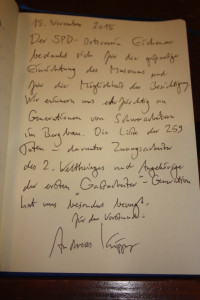 15. November 2015
Der SPD-Ortsverein Eichenau
bedankt sich für die großartige
Einrichtung des Museums und
für die Möglichkeit der Besichtigung.
Wir erinnern uns
Generationen von Schwerarbeitern
im Bergbau. Die Liste der 259
Toten – darunter Zwangsarbeiter
des 2. Weltkrieges und Angehörige
der ersten "Gastarbeiter"-Generation
hat uns besonders bewegt.
Für den Vorstand:
Andreas